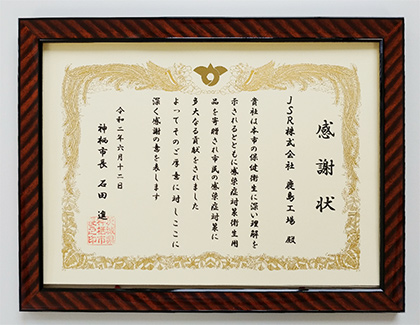 感謝状
JSR株式会社 鹿島工場 殿
貴社は本市の保健衛生に深い理解を
示されるとともに感染症対策衛生用
品を寄贈され市民の感染症対策に
多大なる貢献をされました
よってそのご厚意に対しここに
深く感謝の意を表します
令和二年六月十二日
神栖市長 石田 進